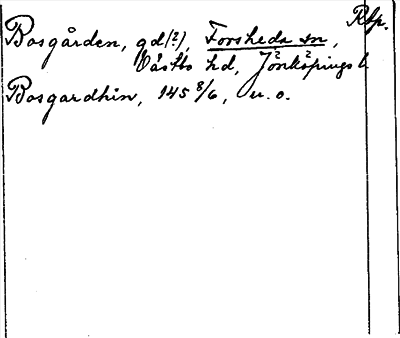 Rep.
Bosgården, gd(?), Forsheda sn,
Västbo hd, Jönköpings l.
Bosgardhin, 145 8/6, u. o.